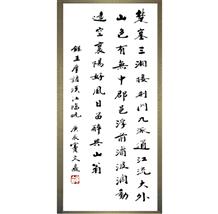 楚塞三湘接荆門九派通江流天地外
山色有無中郡邑浮前浦波瀾動
遠空襄陽好風日留醉與山翁
錄王摩詰漢江臨眺 庚辰